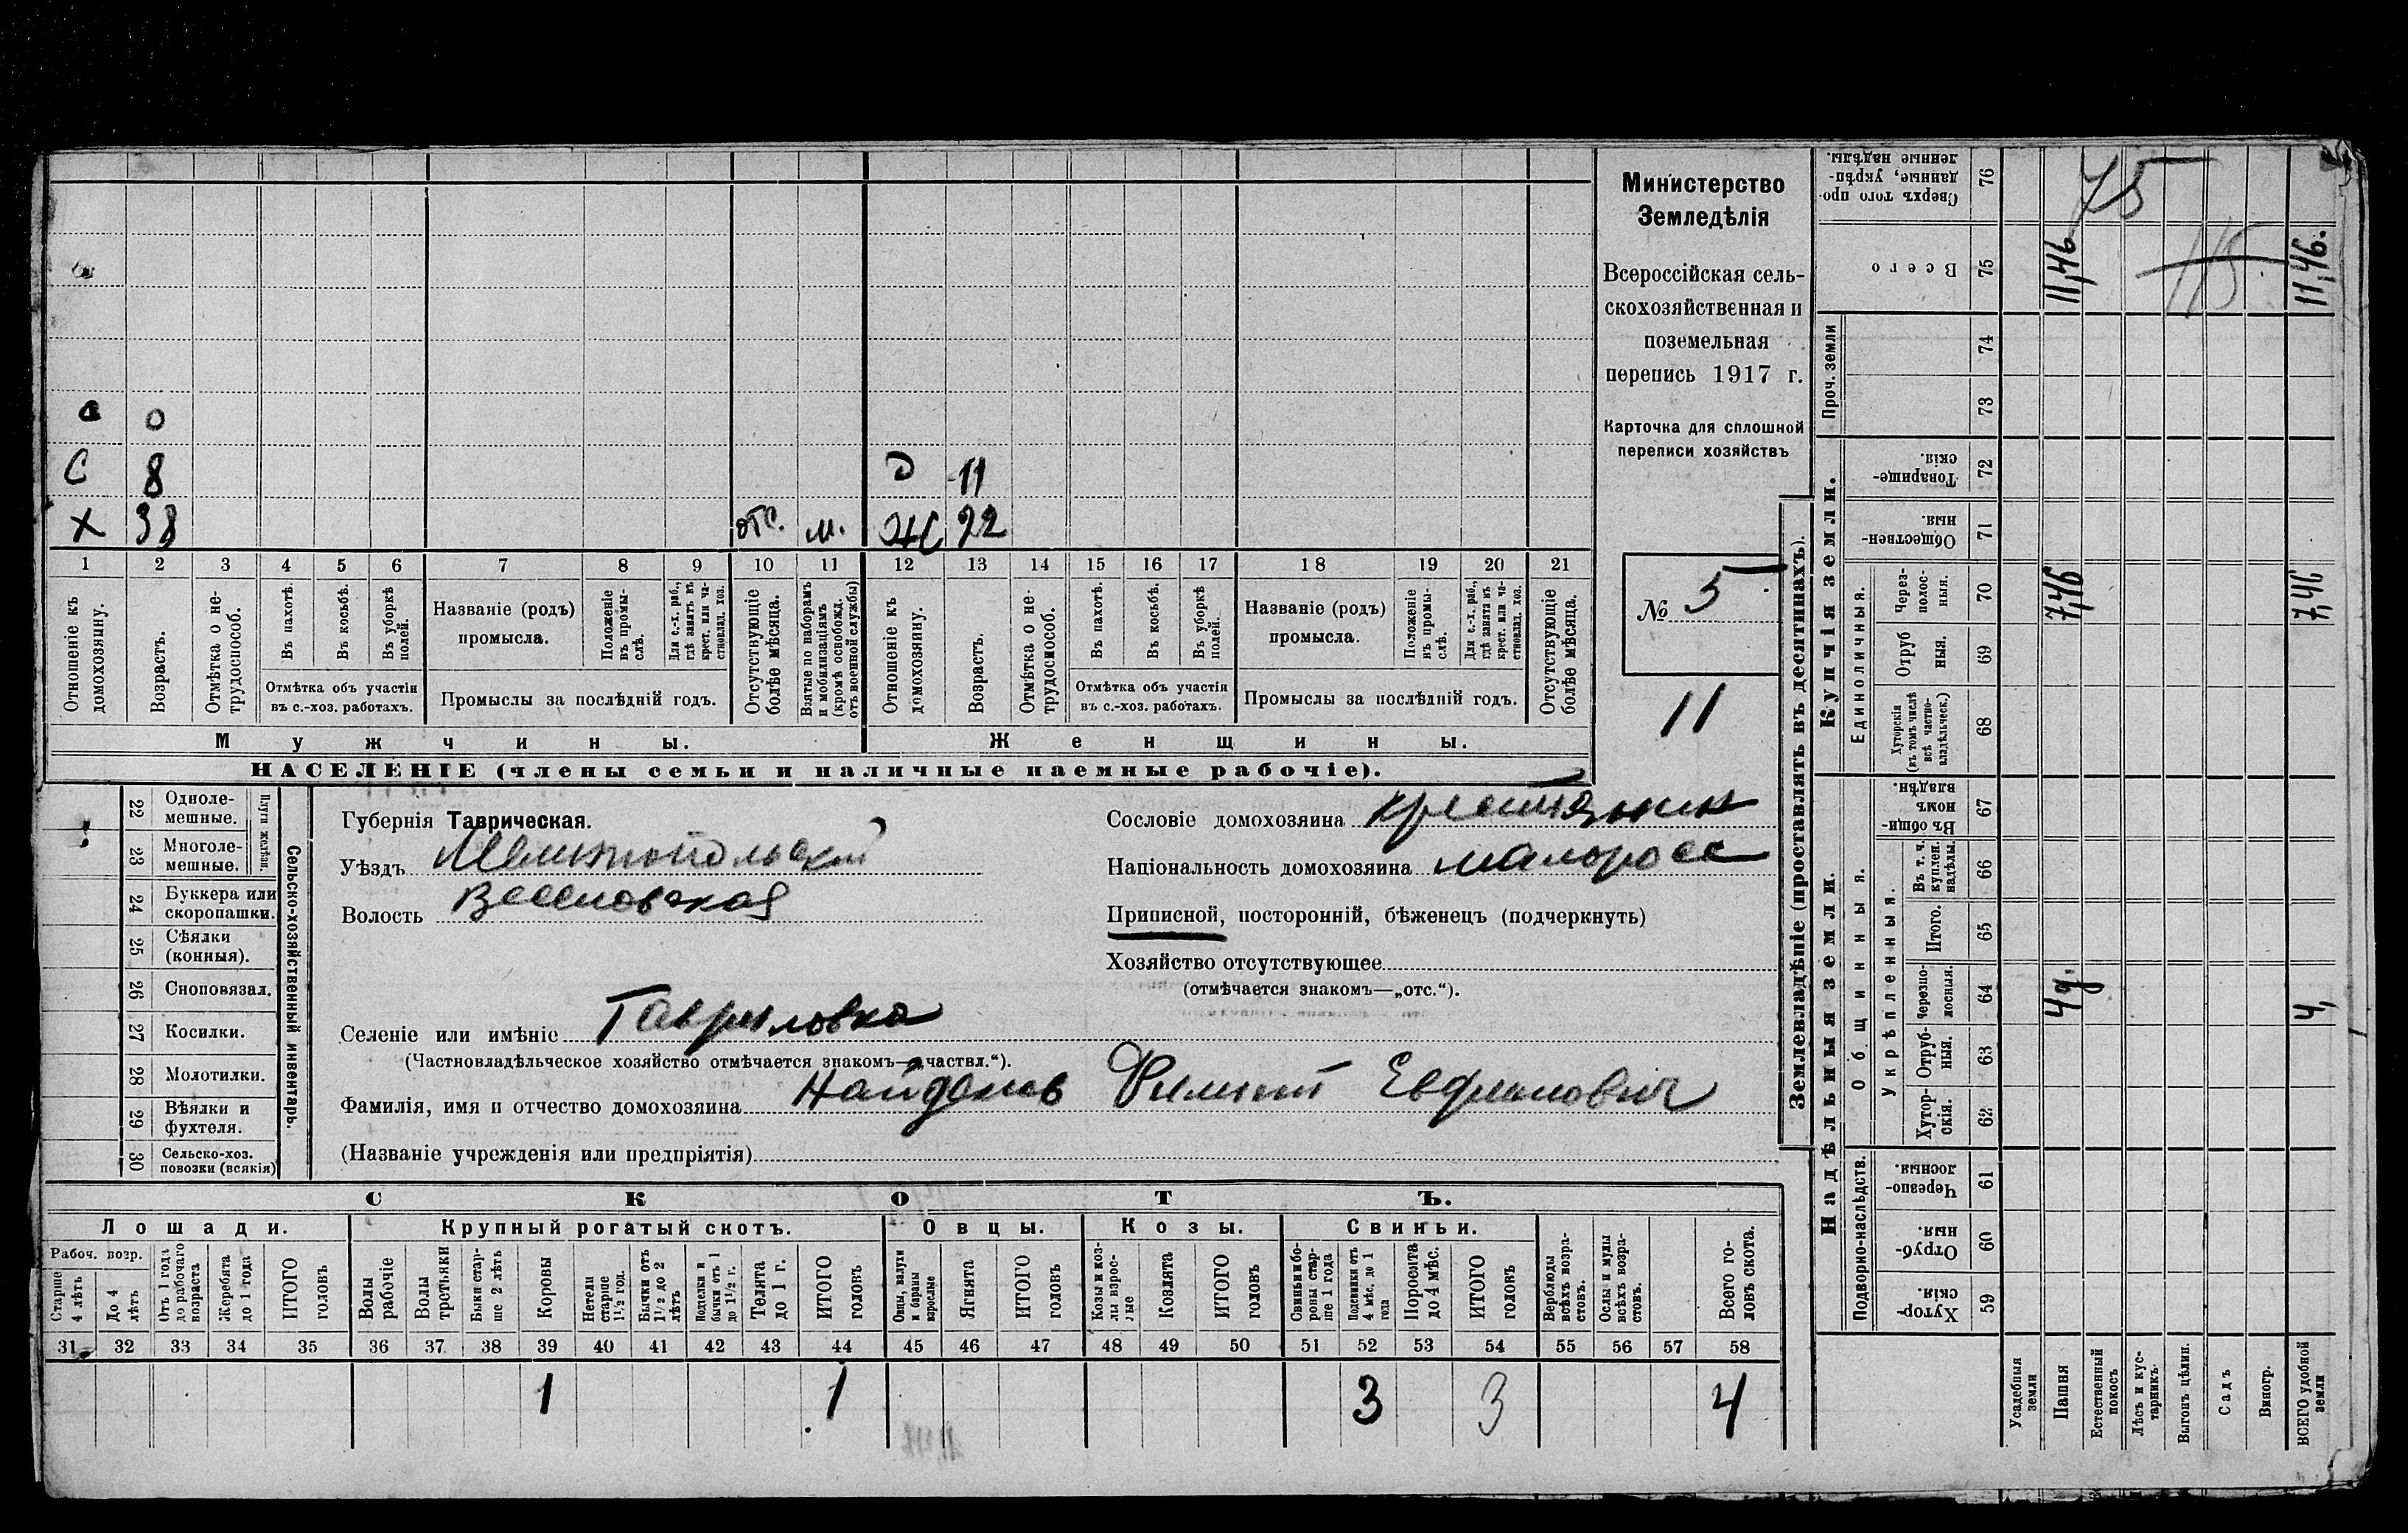 Министерство
Земледѣлія
Всероссійская сель-
скохозяйственная и
поземельная
перепись 1917 г.
Карточка для сплошной
переписи хозяйствъ
№ 5
11
с 0
С 8 Д 11
Х 38 отс. м. Ж 22
1 2 3 4 5 6 7 8 9 10 11 12 13 14 15 16 17 18 19 20 21
Отношеніе къ домохозяину.
Возрастъ.
Отмѣтка о не-трудоспособ.
Въ пахотѣ.
Въ косьбѣ.
Въ уборкѣ полей.
Отмѣтка объ участіи
въ с.-хоз. работахъ.
Названіе (родъ)
промысла.
Положеніе въ промы-слѣ.
Для с.-х. раб., гдѣ занятъ въ крест. или ча-стновлад. хоз.
Промыслы за послѣдній годъ.
Отсутствующіе болѣе мѣсяца.
Взятые по наборамъ и мобилизаціямъ (кромѣ освобожд. отъ военной службы)
Отношеніе къ домохозяину.
Возрастъ.
Отмѣтка о не-трудоспособ.
Въ пахотѣ.
Въ косьбѣ.
Въ уборкѣ полей.
Отмѣтка объ участіи
въ с.-хоз. работахъ.
Названіе (родъ)
промысла.
Положеніе въ промы-слѣ.
Для с.-х. раб., гдѣ занята въ крест. или ча-стновлад. хоз.
Промыслы за послѣдній годъ.
Отсутствующіе болѣе мѣсяца.
Мужчины. Женщины.
НАСЕЛЕНІЕ (члены семьи и наличные наемные рабочіе).
22 Одноле-мешные.
23 Многоле-мешные.
Плуги желѣзн.
24 Буккера или скоропашки.
25 Сѣялки (конныя).
26 Сноповязал.
27 Косилки.
28 Молотилки.
29 Вѣялки и фухтеля.
30 Сельско-хоз. повозки (всякія)
Сельско-хозяйственный инвентарь.
Губернія Таврическая.
Уѣздъ Мелитопольский
Волость Веселовская
Сословіе домохозяина крестьянин
Національность домохозяина малоросс
Приписной, посторонній, бѣженецъ (подчеркнуть)
Хозяйство отсутствующее
(отмѣчается знакомъ—„отс.“).
Селеніе или имѣніе Гавриловка
(Частновладѣльческое хозяйство отмѣчается знакомъ—„частвл.“).
Фамилія, имя и отчество домохозяина Найденов Филипп
(Названіе учрежденія или предпріятія)
СКОТЪ.
Лошади. Крупный рогатый скотъ. Овцы. Козы. Свиньи.
Рабоч. возр.
Старше 4 лѣтъ
До 4 лѣтъ
Отъ 1 года до рабочаго возраста
Жеребята до 1 года
ИТОГО головъ
Волы рабочіе
Волы третьяки
Быки стар-ше 2 лѣтъ
Коровы
Нетели старше 1½ год.
Бычки отъ 1½ до 2 лѣтъ
Подтелки и бычки отъ 1 до 1½ г.
Телята до 1 г.
ИТОГО головъ
Овцы, валухи и бараны взрослые
Ягнята
ИТОГО головъ
Козы и коз-лы взрос-лые
Козлята
ИТОГО головъ
Свиньи и бо-ровы стар-ше 1 года
Подсвинки отъ 4 мѣс. до 1 года
Поросята до 4 мѣс.
ИТОГО головъ
Верблюды всѣхъ возра-стовъ.
Ослы и мулы всѣхъ возра-стовъ.
Всего го-ловъ скота.
31 32 33 34 35 36 37 38 39 40 41 42 43 44 45 46 47 48 49 50 51 52 53 54 55 56 57 58
1 1 3 3 4
Землевладѣніе (проставлять въ десятинахъ).
Надѣльныя земли. Купчія земли. Проч. земли
Подворно-наслѣдств.
Общинныя.
Укрѣпленныя.
Единоличныя.
Хутор-скія. 59
Отруб-ныя. 60
Черезпо-лосныя. 61
Хутор-скія. 62
Отруб-ныя. 63
Черезпо-лосныя. 64
Итого. 65
Въ т. ч. куплен. надѣлы. 66
Въ общи-номъ владѣн. 67
Хуторскія (въ томъ числѣ всѣ частно-владѣльческ.) 68
Отруб ныя. 69
Через-полос-ныя. 70
Обществен-ныя. 71
Товарище-скія. 72
73
74
Всего 75
Сверхъ того про-данные, укрѣп-ленные надѣлы. 76
Усадебныя земли
Пашня
Естественный покосъ
Лѣсъ и кус-тарникъ.
Выгонъ цѣлин.
Садъ
Виногр.
ВСЕГО удобной земли
4 д. 7,46 11,46
4, 7,46 11,46.
75
115